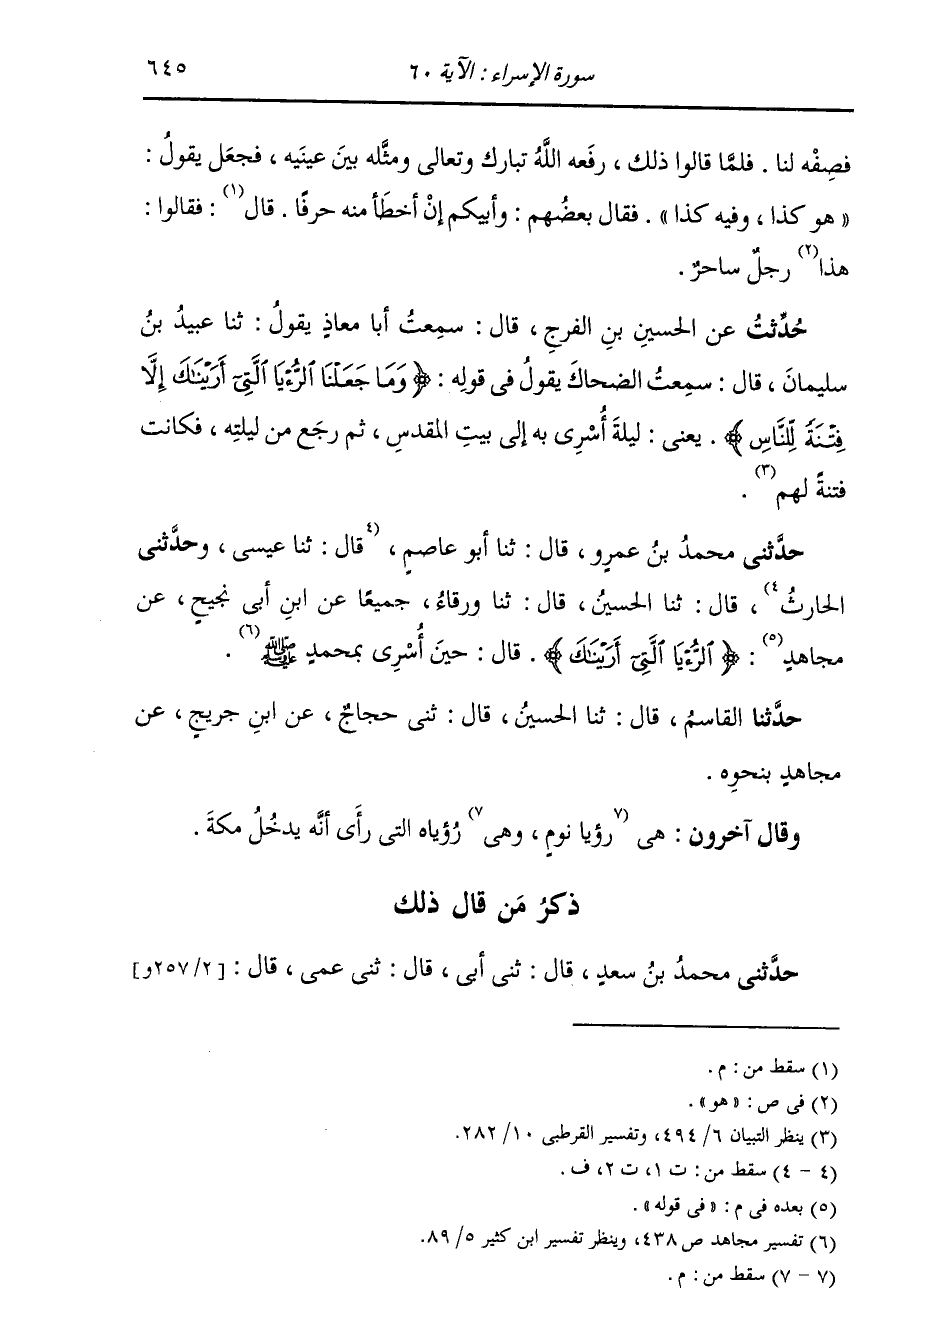 سورة الإسراء : الآية ٦٠
٦٤٥
فصِفْه لنا . فلمَّا قالوا ذلك ، رفَعه اللَّهُ تبارك وتعالى ومثَّله بينَ عينَيه ، فجعَل يقولُ :
« هو كذا ، وفيه كذا » . فقال بعضُهم : وأبيكم إنْ أخطَأ منه حرفًا . قال(١) : فقالوا :
هذا(٢) رجلٌ ساحرٌ .
حُدِّثتُ عن الحسينِ بنِ الفرجِ ، قال : سمِعتُ أبا معاذٍ يقولُ : ثنا عبيدُ بنُ
سليمانَ ، قال : سمِعتُ الضحاكَ يقولُ فى قولِه : ﴿ وَمَا جَعَلْنَا ٱلرُّءْيَا ٱلَّتِىٓ أَرَيْنَٰكَ إِلَّا
فِتْنَةً لِّلنَّاسِ ﴾ . يعنى : ليلةَ أُسْرِى به إلى بيتِ المقدسِ ، ثم رجَع من ليلتِه ، فكانت
فتنةً لهم(٣) .
حدَّثنى محمدُ بنُ عمرٍو ، قال : ثنا أبو عاصمٍ ، (٤قال : ثنا عيسى ، وحدَّثنى
الحارثُ٤) ، قال : ثنا الحسينُ ، قال : ثنا ورقاءُ ، جميعًا عن ابنِ أبى نجيحٍ ، عن
مجاهدٍ(٥) : ﴿ ٱلرُّءْيَا ٱلَّتِىٓ أَرَيْنَٰكَ ﴾ . قال : حينَ أُسْرِى بمحمدٍ ﷺ(٦) .
حدَّثنا القاسمُ ، قال : ثنا الحسينُ ، قال : ثنى حجاجٌ ، عن ابنِ جريجٍ ، عن
مجاهدٍ بنحوِه .
وقال آخرون : هى (٧رؤيا نومٍ ، وهى٧) رُؤياه التى رأَى أنَّه يدخُلُ مكةَ .
ذكرُ مَن قال ذلك
حدَّثنى محمدُ بنُ سعدٍ ، قال : ثنى أبى ، قال : ثنى عمى ، قال : [٢/ ٢٥٧و]
(١) سقط من : م .
(٢) فى ص : « هو » .
(٣) ينظر التبيان ٦/ ٤٩٤، وتفسير القرطبى ١٠/ ٢٨٢.
(٤ - ٤) سقط من : ت ١، ت ٢، ف .
(٥) بعده فى م : « فى قوله » .
(٦) تفسير مجاهد ص ٤٣٨، وينظر تفسير ابن كثير ٥/ ٨٩.
(٧ - ٧) سقط من : م .